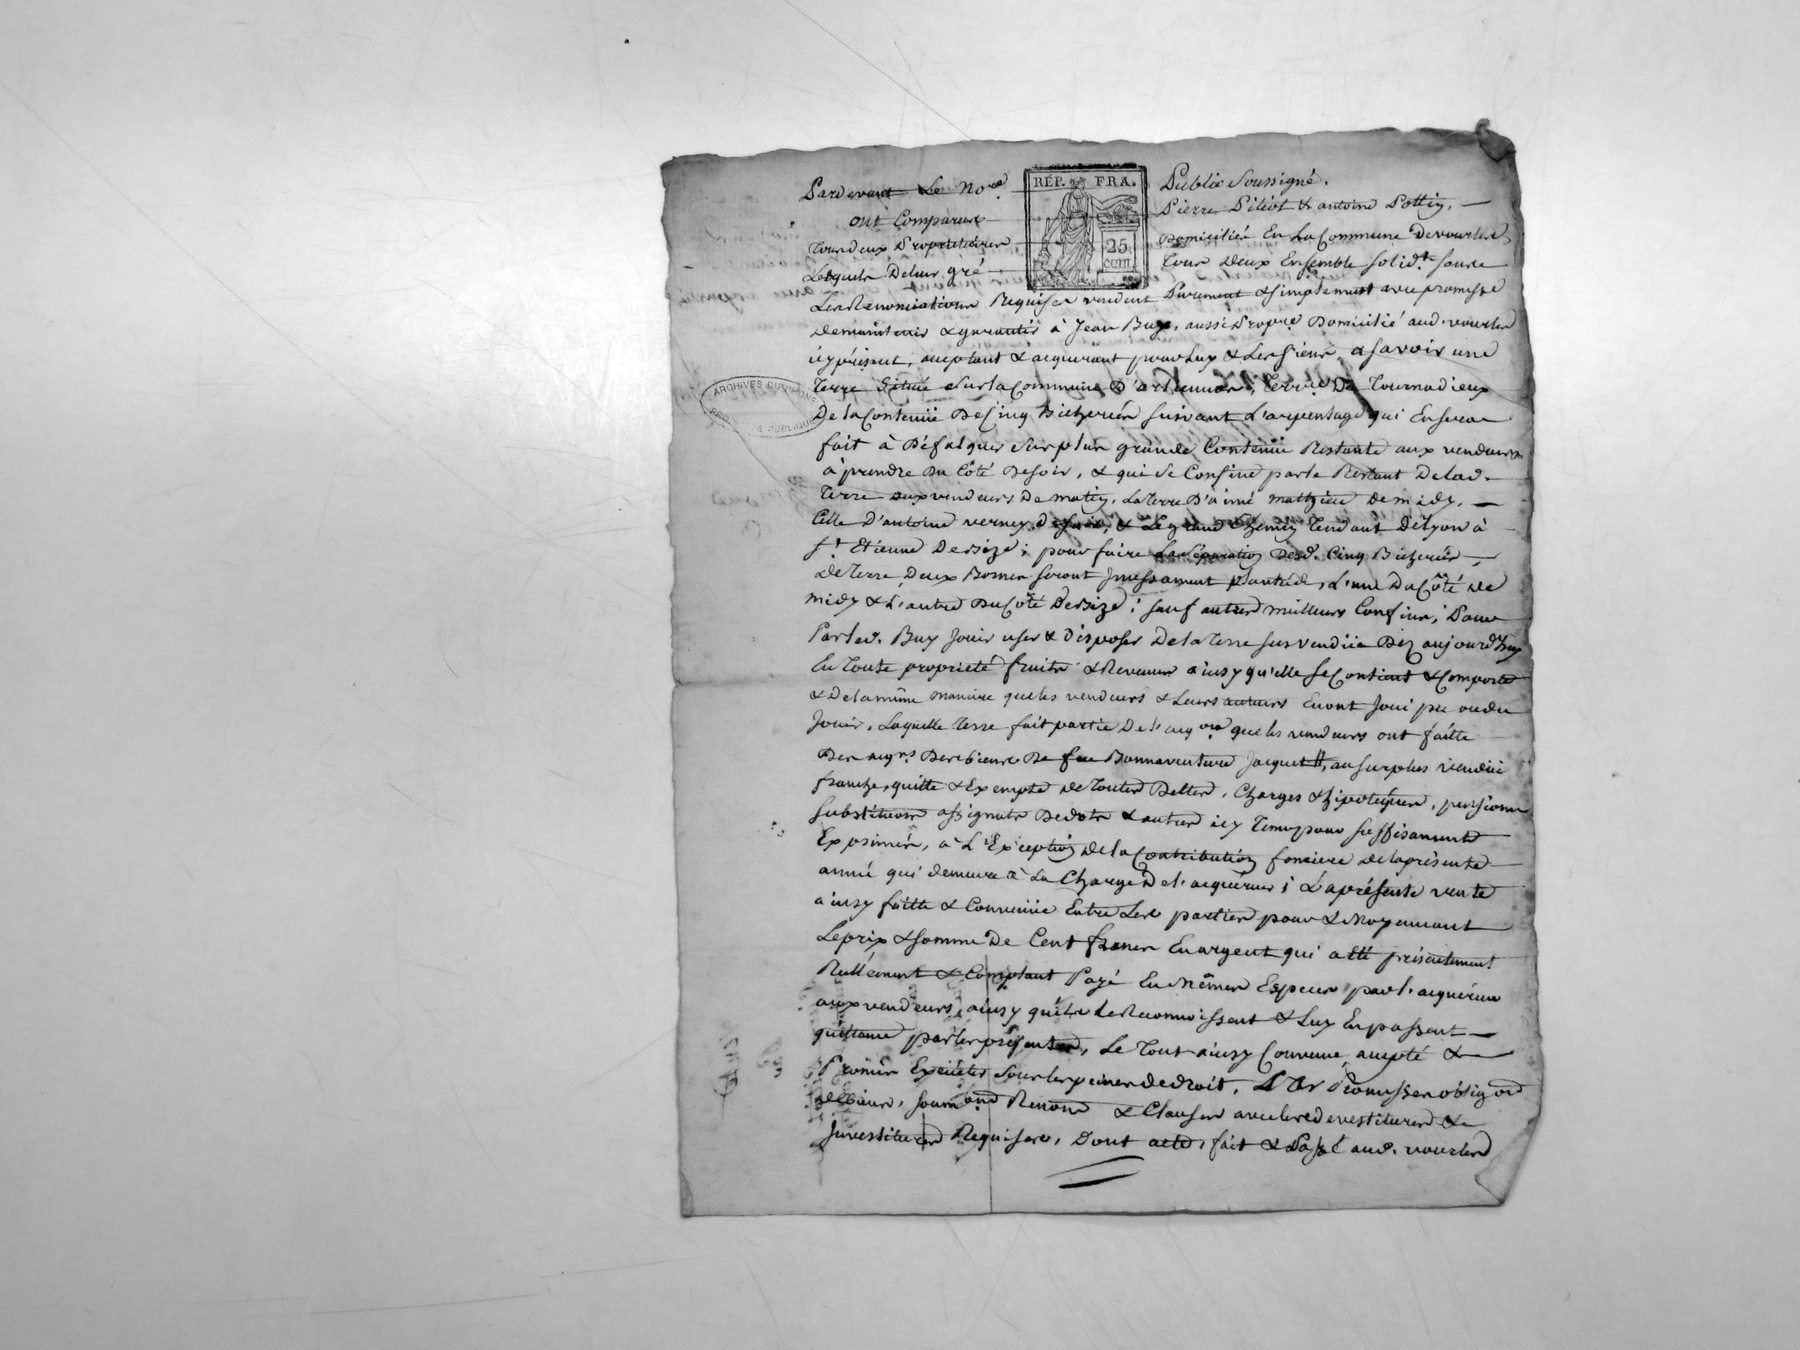 Pardevant Le No.re Public Soussigné.
RÉP. FRA.
25
cent.
ont Comparus Pierre Pitiot & antoine Pottin,
Tous deux Propriétaires Domiciliés En La Commune de vourles
Lesquels De leur gré Tous Deux Ensemble solid.t sous
Les Renonciations Requises vendent Purement & simplement avec promesse
de maintenir & garantir à Jean Buy, aussi Propre Domicilié aud. vourles
icy présent, acceptant & acquerant pour Luy & Les siens, a savoir une
Terre Située Sur la Commune D'
ARCHIVES DU RHONE
RÉPUBLIQUE
De la Contenüe De Cinq Bicherées suivant L'arpentage qui En sera
fait à Défalquer Sur plus grande Contenüe Restante aux vendeurs
à prendre Du Côté De soir, & qui se Confine par le Restant De lad.
Terre aux vendeurs De matin, La terre D'aimé mathieu de midy,
Celle D'antoine verney De soir, & Le grand Chemin Tendant De Lyon à
S.t Etienne De bize; pour faire La Séparation Desd. Cinq Bicherées
de Terre Deux Bornes seront Incessament plantées, L'une Du Côté De
midy & L'autre Du Côté De bize; sauf autres meilleurs Confins, Pour
Par led. Buy Jouir user & Disposer De la Terre sus vendüe Dez aujourd'huy
En Toute propriété fruits & Revenus ainsy qu'elle se Contient & Comporte
& De la même maniere que les vendeurs & Leurs auteurs En ont Joui pu ou du
Jouir, Laquelle Terre fait partie De l'acq.on que les vendeurs ont faitte
Des Biens De feu Bonnaventure Jacquet, au surplus vendüe
franche, quitte & Exempte de Toutes Dettes, Charges & hipoteques, pensions
substitutions assignats De dots & autres icy Tenus pour suffisament
Exprimés, à L'Exception de la Contribution fonciere de la présente
année qui demeure à La Charge De l'acquéreur; La présente vente
ainsy faitte & Convenüe Entre Les parties pour & Moyennant
Le prix & somme De Cent francs En argent qui a été présentement
Réellement & Comptant Payé En Mêmes Espèces par l'acquéreur
aux vendeurs, ainsy qu'ils Le Reconnoissent & Luy En passent
quittance par les présentes, Le Tout ainsy Convenu, accepté &
Promis Exécuter Sous les peines de droit, Par Promesses oblig.ons
de Biens, soum.ons Renon.s & Clauses avec les devestitures &
Investitures Requises, Dont acte, fait & Passé aud. vourles